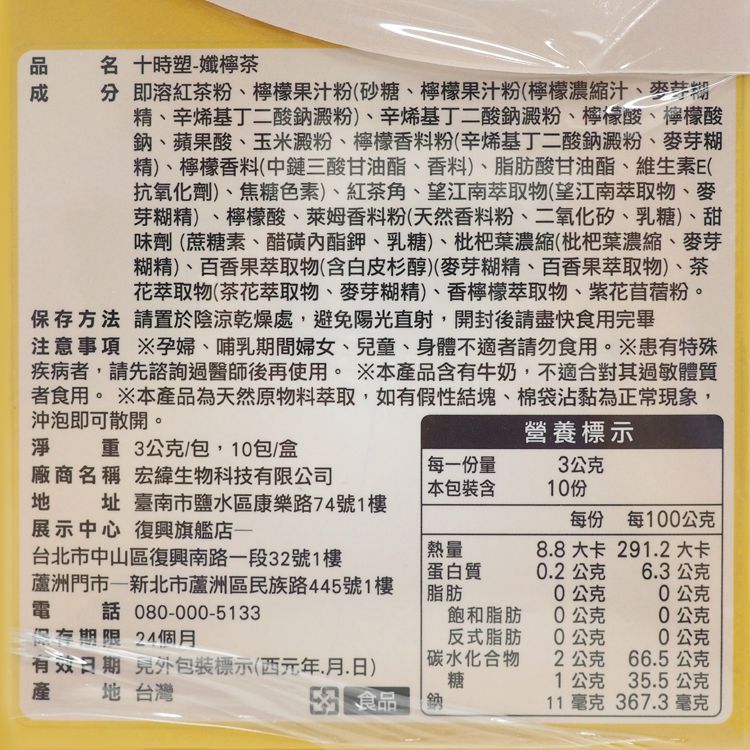 品名 十時塑-孅檸茶
成分 即溶紅茶粉、檸檬果汁粉(砂糖、檸檬果汁粉(檸檬濃縮汁、麥芽糊
精、辛烯基丁二酸鈉澱粉)、辛烯基丁二酸鈉澱粉、檸檬酸、檸檬酸
鈉、蘋果酸、玉米澱粉、檸檬香料粉(辛烯基丁二酸鈉澱粉、麥芽糊
精)、檸檬香料(中鏈三酸甘油酯、香料)、脂肪酸甘油酯、維生素E(
抗氧化劑)、焦糖色素)、紅茶角、望江南萃取物(望江南萃取物、麥
芽糊精)、檸檬酸、萊姆香料粉(天然香料粉、二氧化矽、乳糖)、甜
味劑(蔗糖素、醋磺內酯鉀、乳糖)、枇杷葉濃縮(枇杷葉濃縮、麥芽
糊精)、百香果萃取物(含白皮杉醇)(麥芽糊精、百香果萃取物)、茶
花萃取物(茶花萃取物、麥芽糊精)、香檸檬萃取物、紫花苜蓿粉。
保存方法 請置於陰涼乾燥處，避免陽光直射，開封後請盡快食用完畢
注意事項 ※孕婦、哺乳期間婦女、兒童、身體不適者請勿食用。※患有特殊
疾病者，請先諮詢過醫師後再使用。※本產品含有牛奶，不適合對其過敏體質
者食用。※本產品為天然原物料萃取，如有假性結塊、棉袋沾黏為正常現象，
沖泡即可散開。
淨重 3公克/包，10包/盒
廠商名稱 宏緯生物科技有限公司
地址 臺南市鹽水區康樂路74號1樓
展示中心 復興旗艦店—
台北市中山區復興南路一段32號1樓
蘆洲門市—新北市蘆洲區民族路445號1樓
電話 080-000-5133
保存期限 24個月
有效日期 見外包裝標示(西元年.月.日)
產地 台灣
食品
營養標示
每一份量 3公克
本包裝含 10份
每份 每100公克
熱量 8.8 大卡 291.2 大卡
蛋白質 0.2 公克 6.3 公克
脂肪 0 公克 0 公克
飽和脂肪 0 公克 0 公克
反式脂肪 0 公克 0 公克
碳水化合物 2 公克 66.5 公克
糖 1 公克 35.5 公克
鈉 11 毫克 367.3 毫克